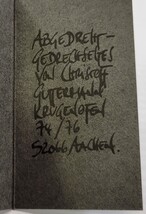 ABGEDREHT-
GEDRECHSELTES
VON CHRISTOFF
GUTERMANN
KRUGENOFEN
74/76
52066 AACHEN.